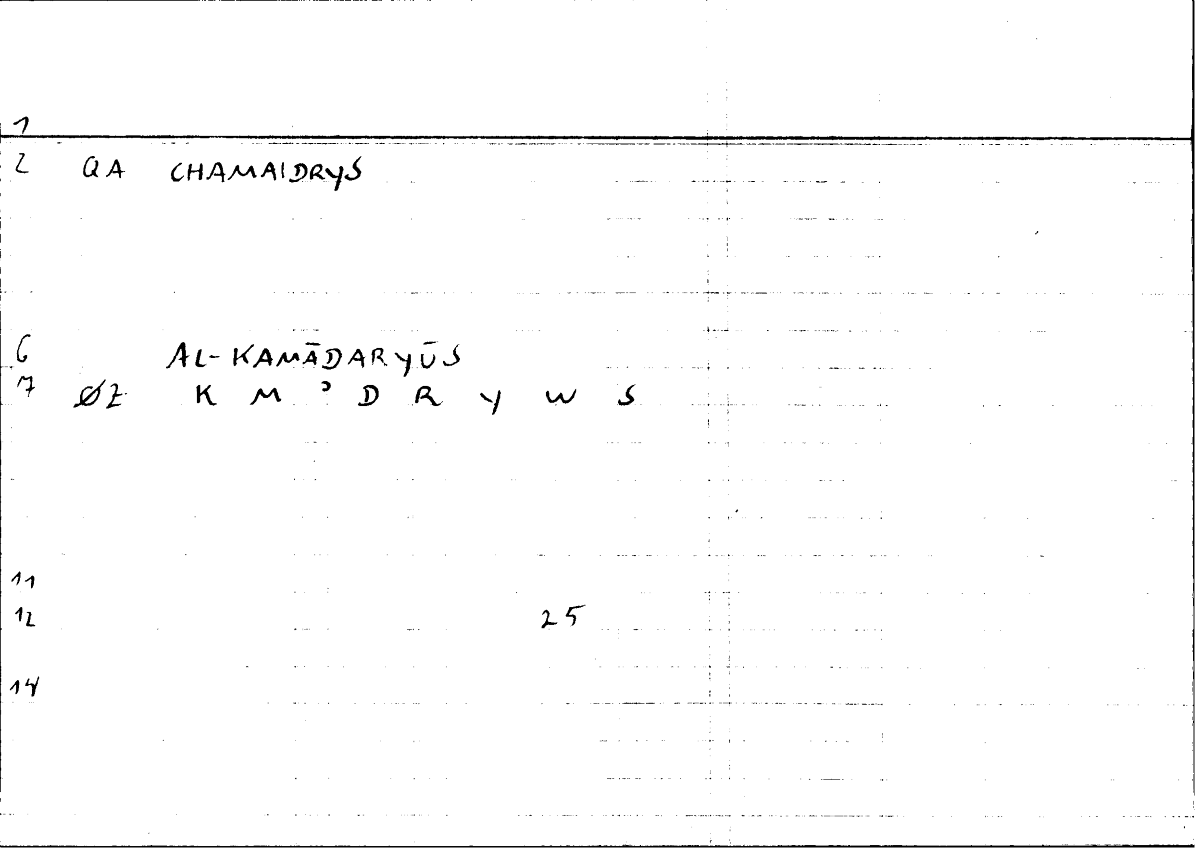 1
2 QA CHAMAIDRYS
6 AL-KAMĀDARYŪS
7 ØZ K M ʾ D R Y W S
11
12 25
14